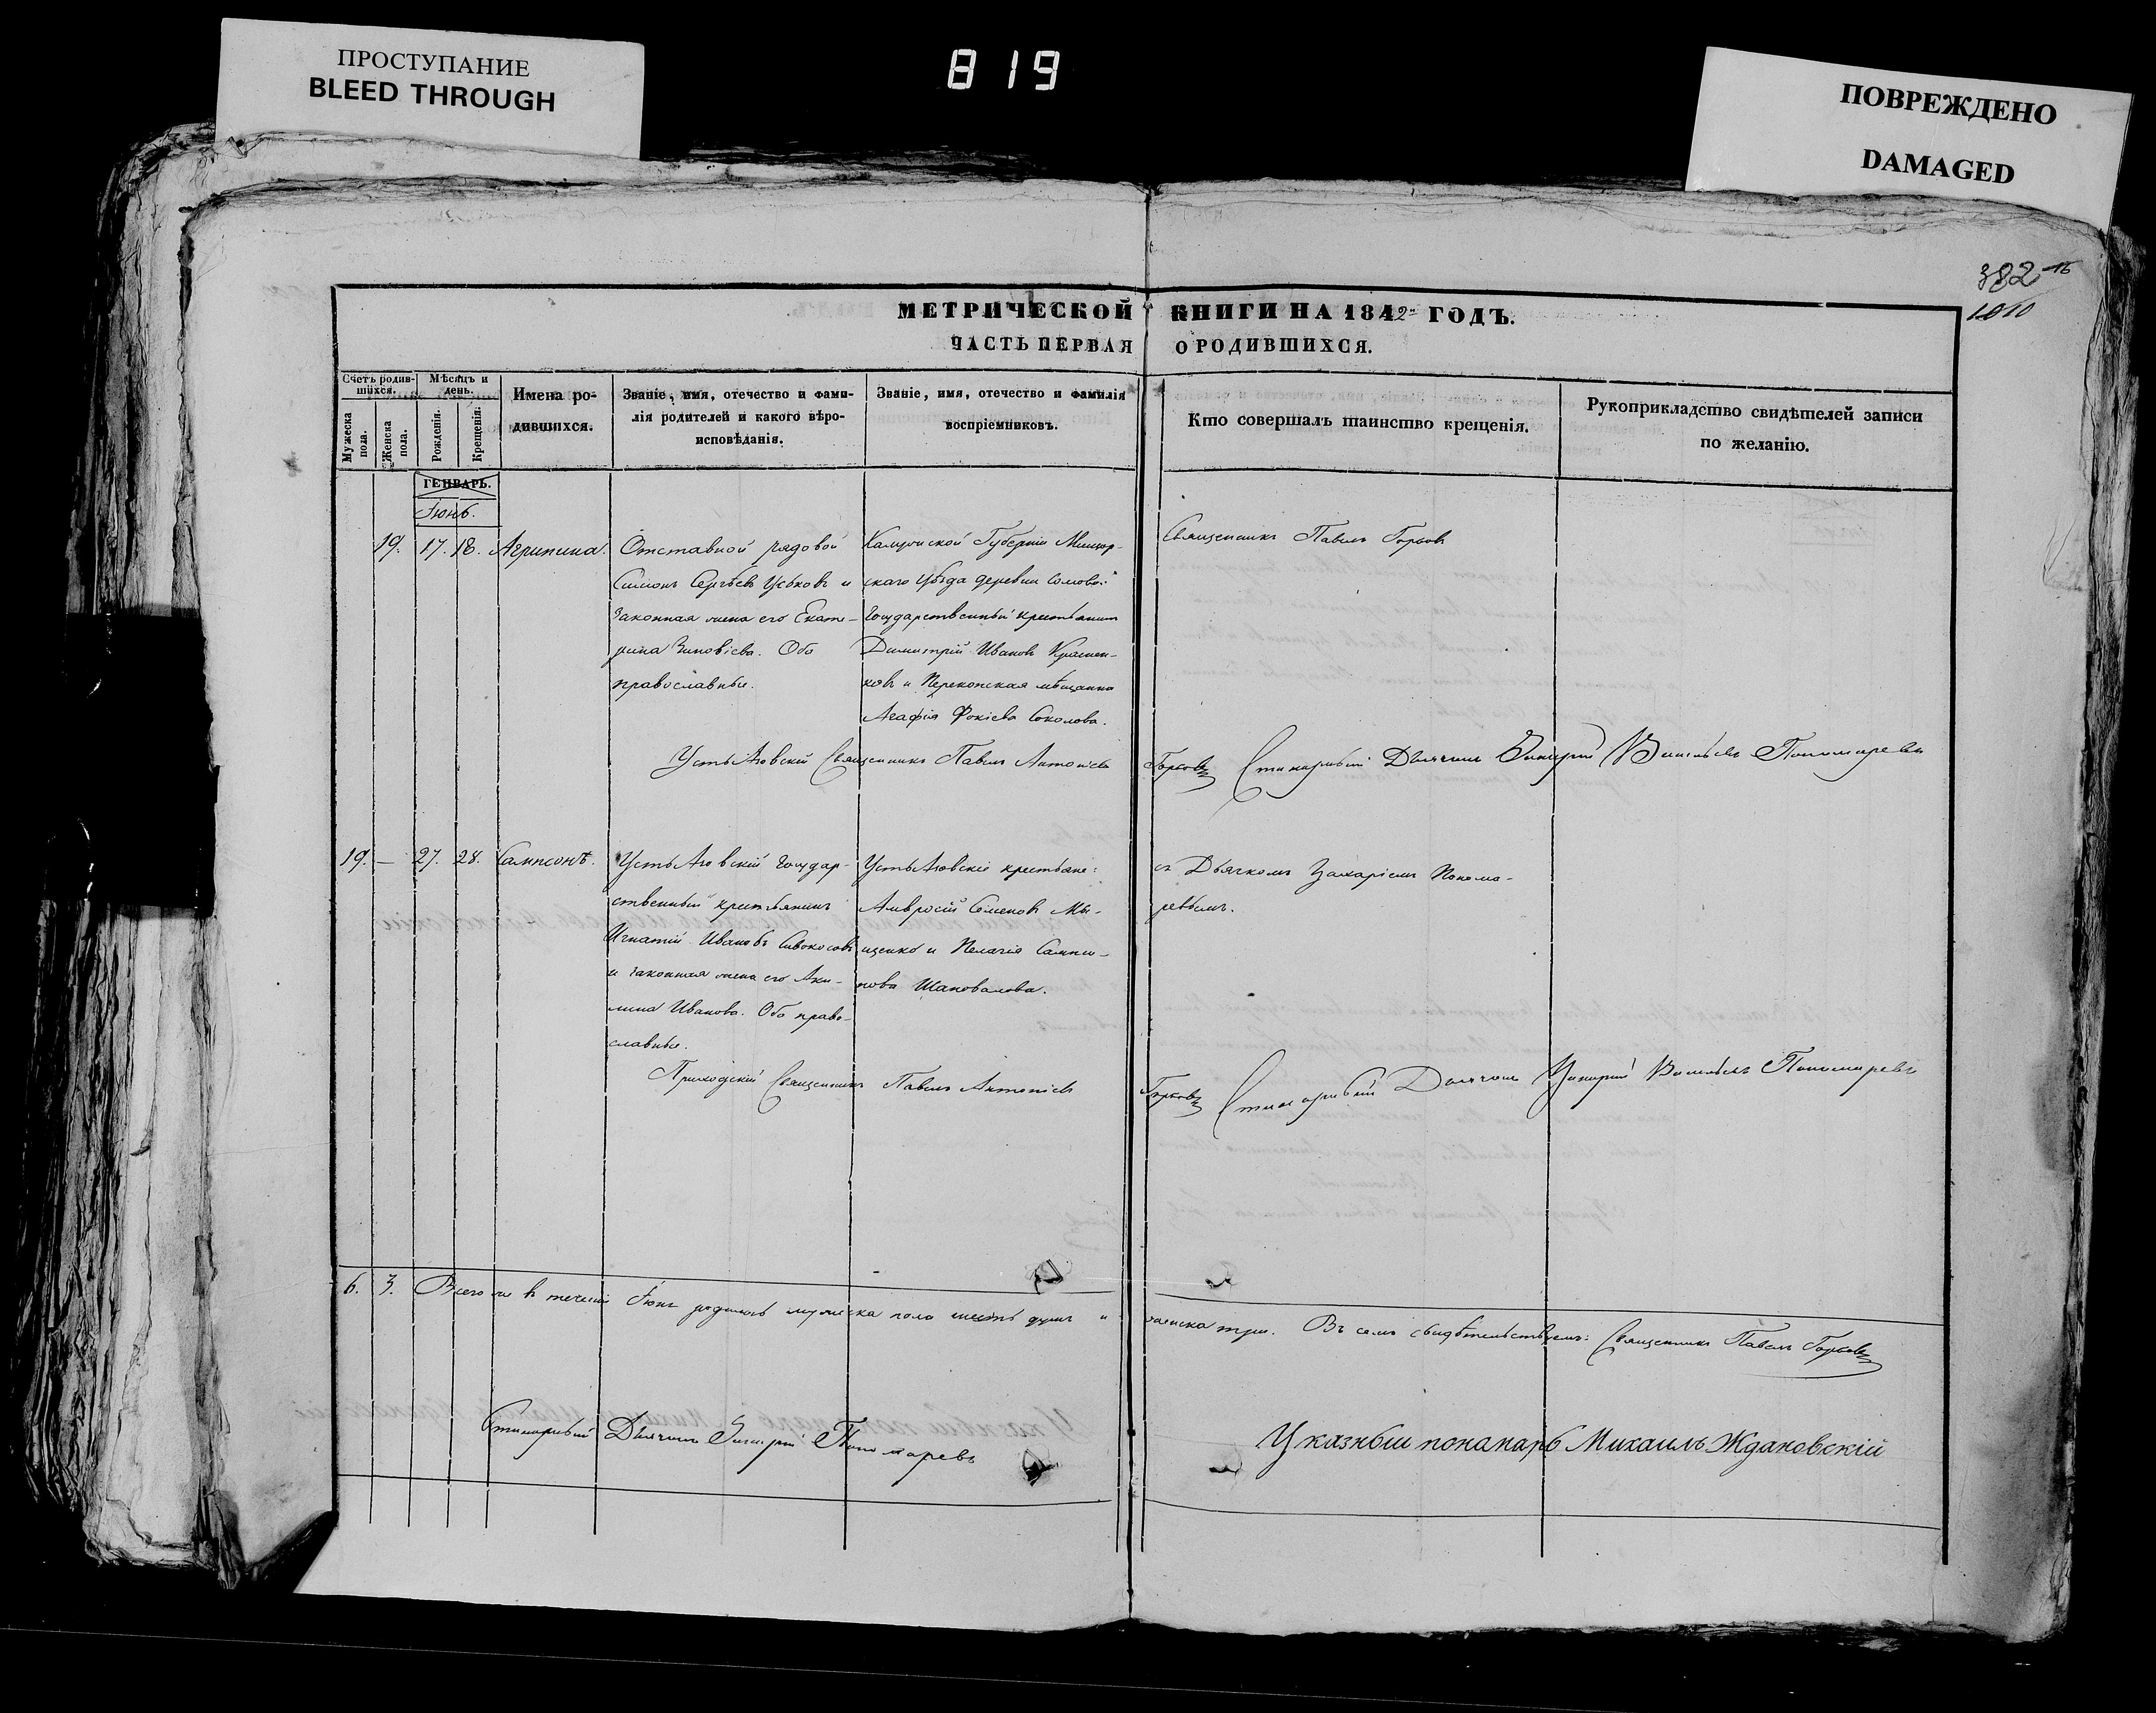 ПРОСТУПАНИЕ
BLEED THROUGH
819
ПОВРЕЖДЕНО
DAMAGED
382
1010
МЕТРИЧЕСКОЙ КНИГИ НА 1842 ГОДЪ.
ЧАСТЬ ПЕРВАЯ О РОДИВШИХСЯ.
Счетъ родив-
шихся.
Мужеска
пола.
Женска
пола.
Мѣсяцъ и
день.
Рожденія.
Крещенія.
Имена ро-
дившихся.
Званіе, имя, отечество и фами-
лія родителей и какого вѣро-
исповѣданія.
Званіе, имя, отечество и фамилія
воспріемниковъ.
Кто совершалъ таинство крещенія.
Рукоприкладство свидѣтелей записи
по желанію.
ГЕНВАРЬ.
Іюнь.
19. 17. 18. Агрипина.
Отставной рядовой
Симонъ Сергѣевъ и
законная жена его Екате-
рина Зиновіева. Оба
православные.
Губерніи
скаго уѣзда деревни Соловой
Государственный крестьянинъ
Димитрій Ивановъ
ковъ и Перекопская мѣщанка
Агафія Фокіева Соколова.
Священникъ Павелъ
Священникъ Павелъ Антоніевъ
Дьячокъ Пономаревъ
19. — 27. 28. Сампсонъ.
Государ-
ственный крестьянинъ
Игнатій Ивановъ
и законная жена его Аки-
лина Иванова. Оба право-
славные.
крестьяне:
Амвросій Семеновъ Мы-
щенко и Пелагія Сампсо-
нова Шаповалова.
съ Дьячкомъ Захаріемъ Понома-
ревымъ.
Приходскій Священникъ Павелъ Антоніевъ
Дьячокъ Захарій Пономаревъ
6. 3. Всего въ теченіи Іюня родилось мужеска пола шесть душъ и женска три. Въ семъ свидѣтельствуемъ: Священникъ Павелъ
Дьячокъ Захарій Пономаревъ
Указный понамарь Михаилъ Ждановскій